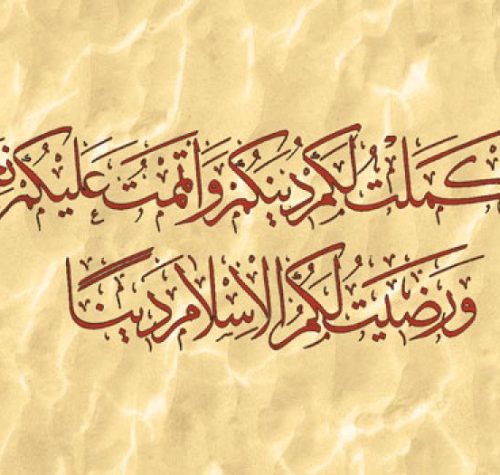 كملت لكم دينكم وأتممت عليكم
ورضيت لكم الإسلام دينًا